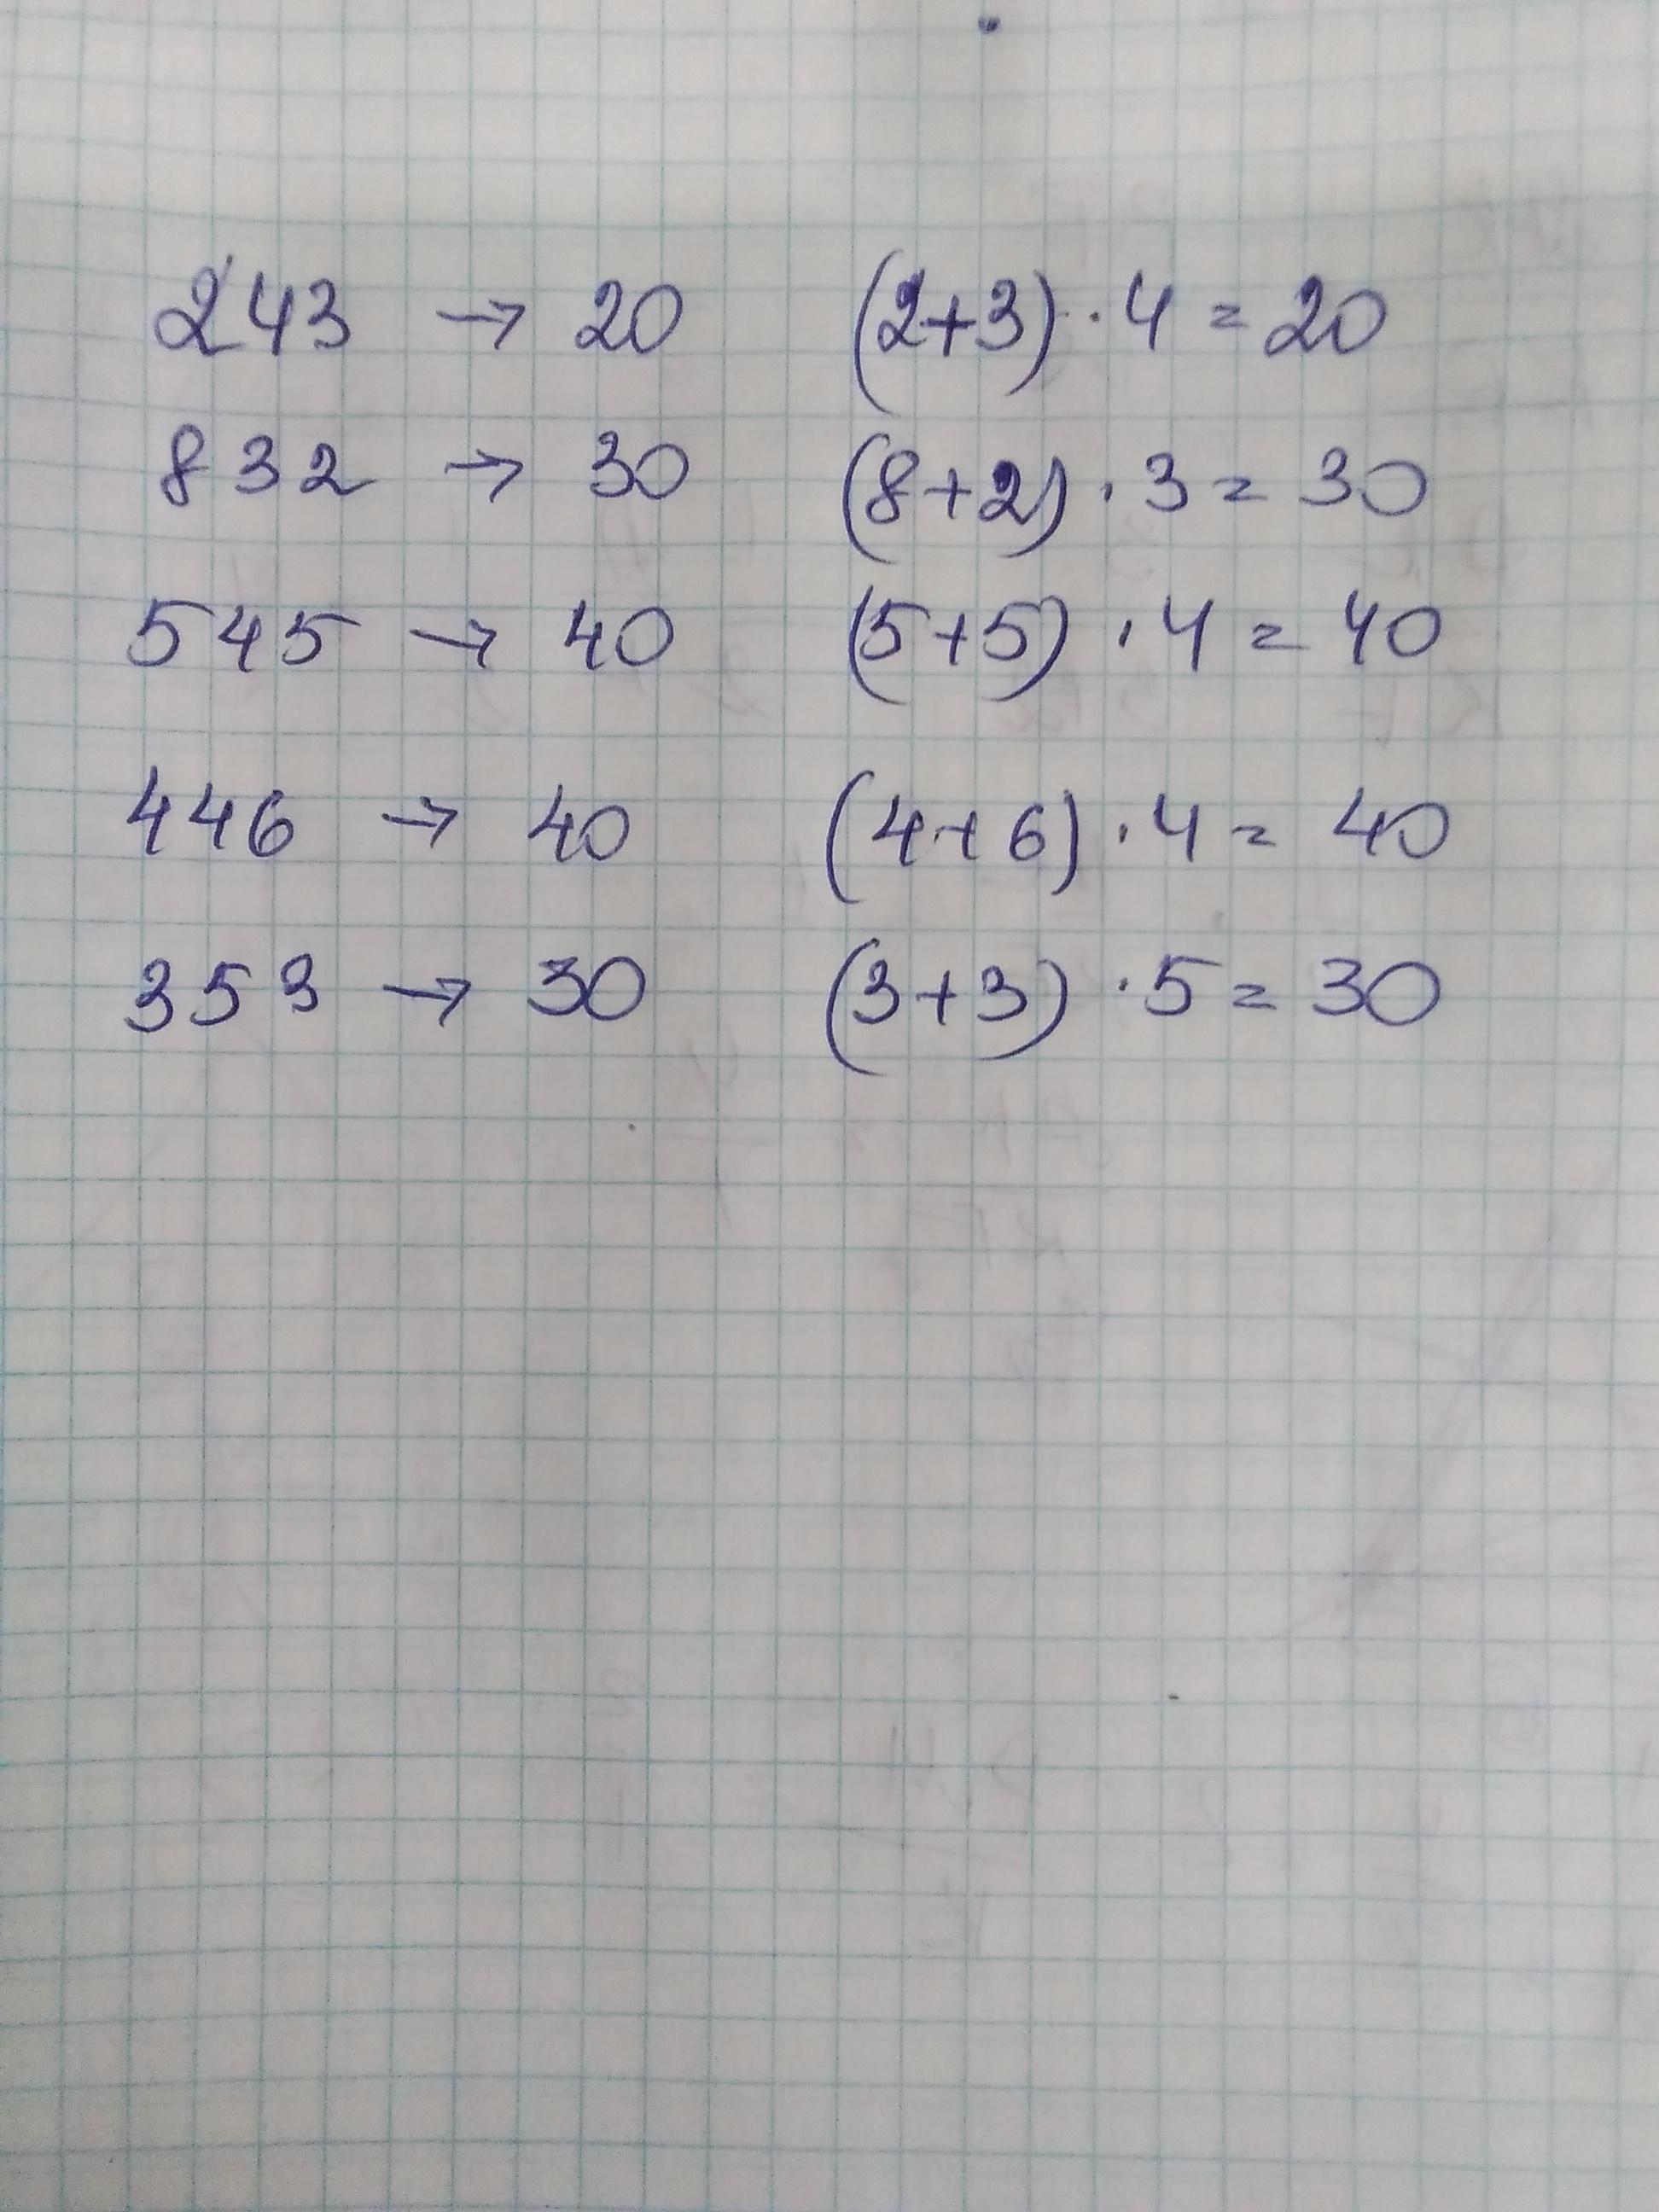 243 → 20 (2+3)·4=20
832 → 30 (8+2)·3=30
545 → 40 (5+5)·4=40
446 → 40 (4+6)·4=40
353 → 30 (3+3)·5=30